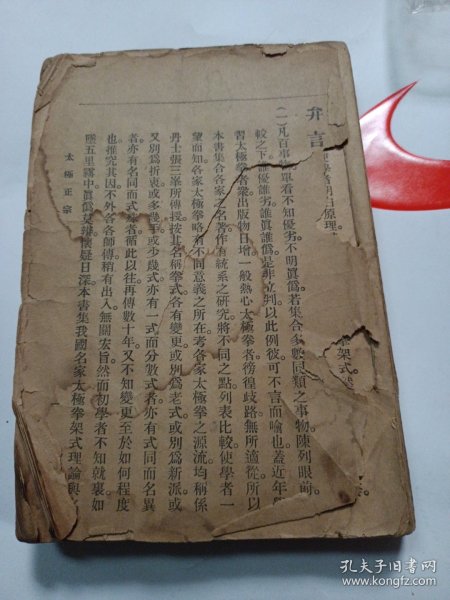 弁言
(一)凡百事物單看不知優劣不明眞僞若集合多數同類之事物陳列眼前
較之下誰優誰劣誰眞誰僞是非立判以此例彼可不言而喻也蓋近年
習太極拳者衆出版物日增一般熱心太極拳者徬徨歧路無所適從所以
本書集合各家之名著作有統系之研究將不同之點列表比較使學者一
望而知各家太極拳略有不同意義之所在考各家太極拳之源流均稱係
丹士張三峯所傳授按其名稱拳式各有變更或別爲老式或別爲新派或
又別爲折衷或多幾式或少幾式亦有一式而分數式者亦有式同而名異
者亦有名同而式異者循此以往再傳數十年又不知變更至於如何程度
也推究其因不外各各師傳稍有出入無關宏旨然而初學者不知就裏如
墜五里霧中眞僞莫辨懷疑日深本書集我國名家太極拳架式理論與
太極正宗
原理
架式
孔夫子旧书网
www.kongfz.com